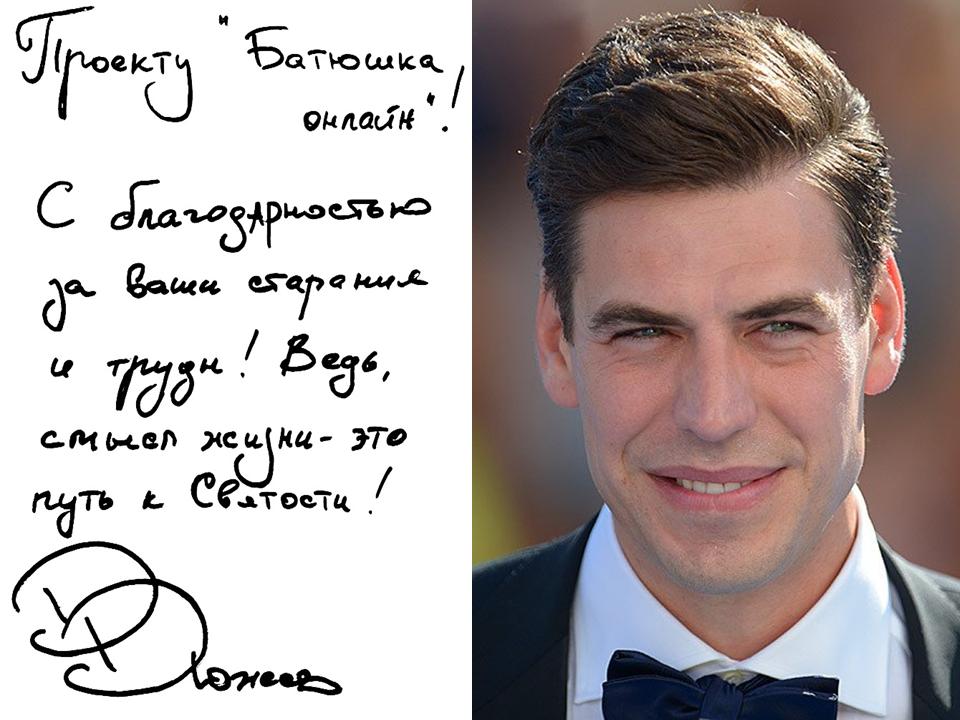 Проекту "Батюшка
онлайн"!
С благодарностью
за ваши старания
и труды! Ведь,
смысл жизни - это
путь к Святости!